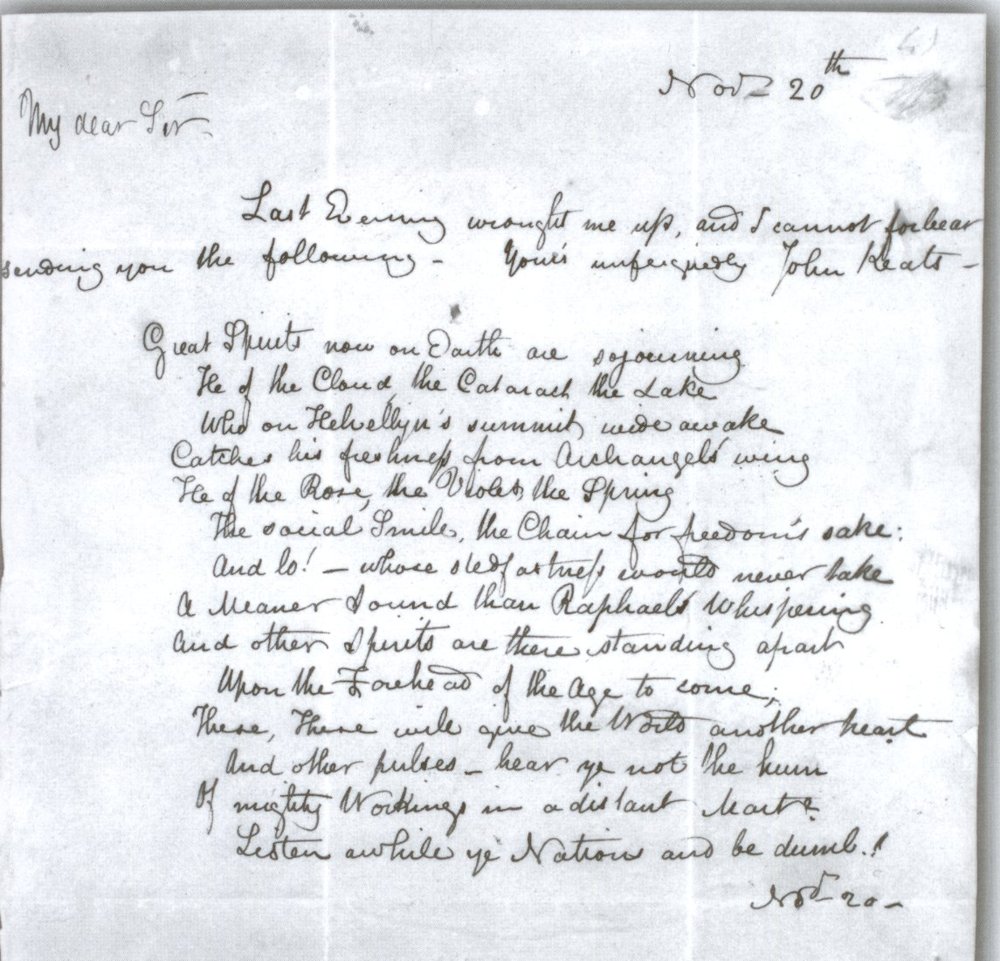 Novr 20th
My dear Sir
Last Evening wrought me up, and I cannot forbear
sending you the following – Your's unfeignedly John Keats –
Great Spirits now on Earth are sojourning
He of the Cloud, the Cataract the Lake
Who on Helvellyn's summit, wide awake
Catches his freshness from Archangel's wing
He of the Rose, the Violet, the Spring
The social Smile, the Chain for freedom's sake:
And lo! – whose stedfastness would never take
A Meaner Sound than Raphael's Whispering
And other Spirits are there standing apart
Upon the Forehead of the Age to come;
These, These will give the World another heart
And other pulses – hear ye not the hum
Of mighty Workings in a distant Mart?
Listen awhile ye Nations and be dumb.!
Novr 20 –